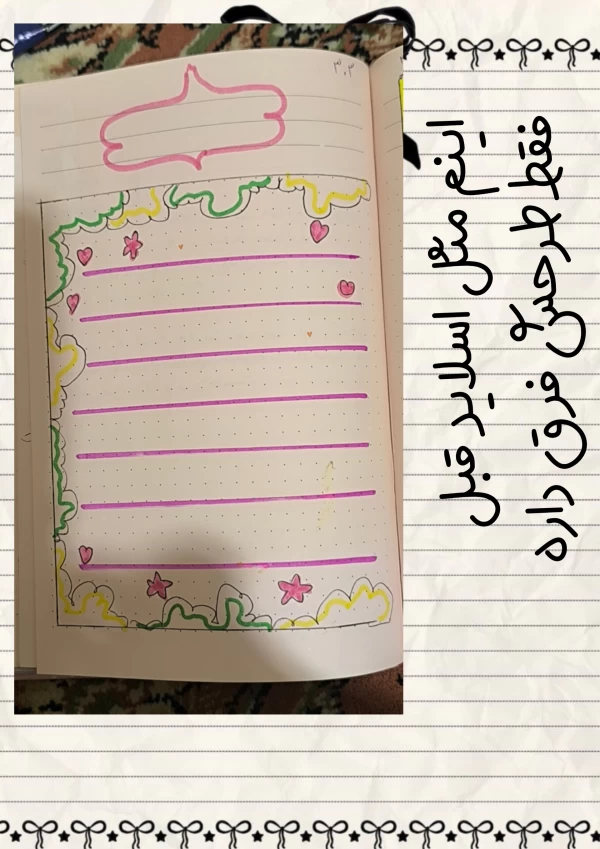 اینم مثل اسلاید قبل
فقط طرحش فرق داره